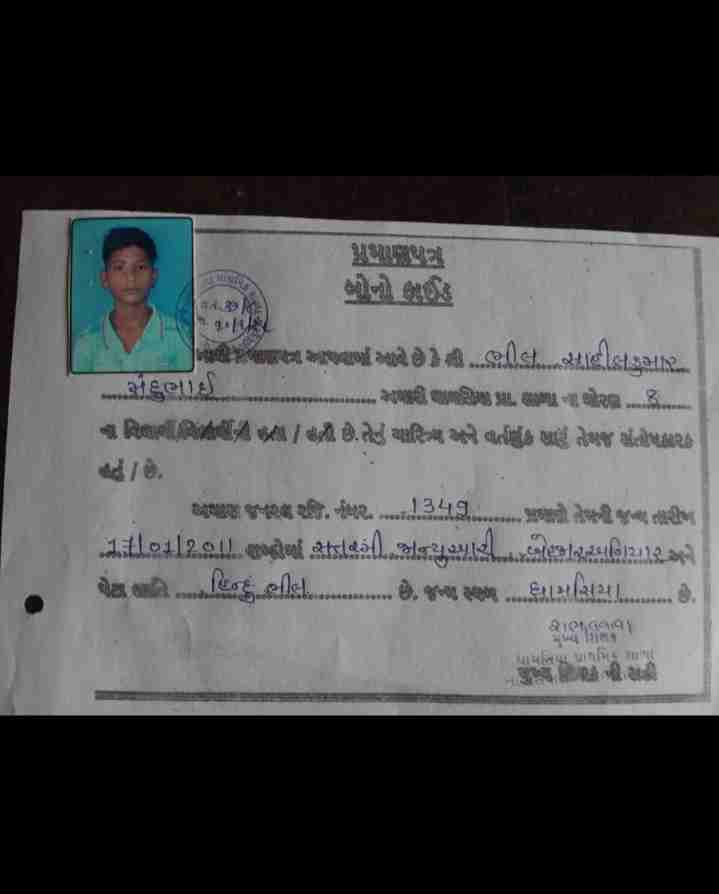 પ્રમાણપત્ર
બોનો ફાઈડ
આથી પ્રમાણપત્ર આપવામાં આવે છે કે શ્રી ભીલ સાહીલકુમાર
અમારી ધામસિયા પ્રા. શાળા ના ધોરણ 8
ના વિદ્યાર્થી/વિદ્યાર્થીની હતા / હતી છે. તેનું ચારિત્ર્ય અને વર્તણુંક સારું તેમજ સંતોષકારક
હતું / છે.
અમારા જનરલ રજિ. નંબર. 1349 પ્રમાણે તેમની જન્મ તારીખ
17/01/2011 શબ્દોમાં સત્તરમી જાન્યુઆરી બેહજારઅગિયાર અને
પેટા જ્ઞાતિ હિન્દુ ભીલ છે. જન્મ સ્થળ ધામસિયા છે.
મુખ્ય શિક્ષક
ધામસિયા પ્રાથમિક શાળા
મુખ્ય શિક્ષક ની સહી